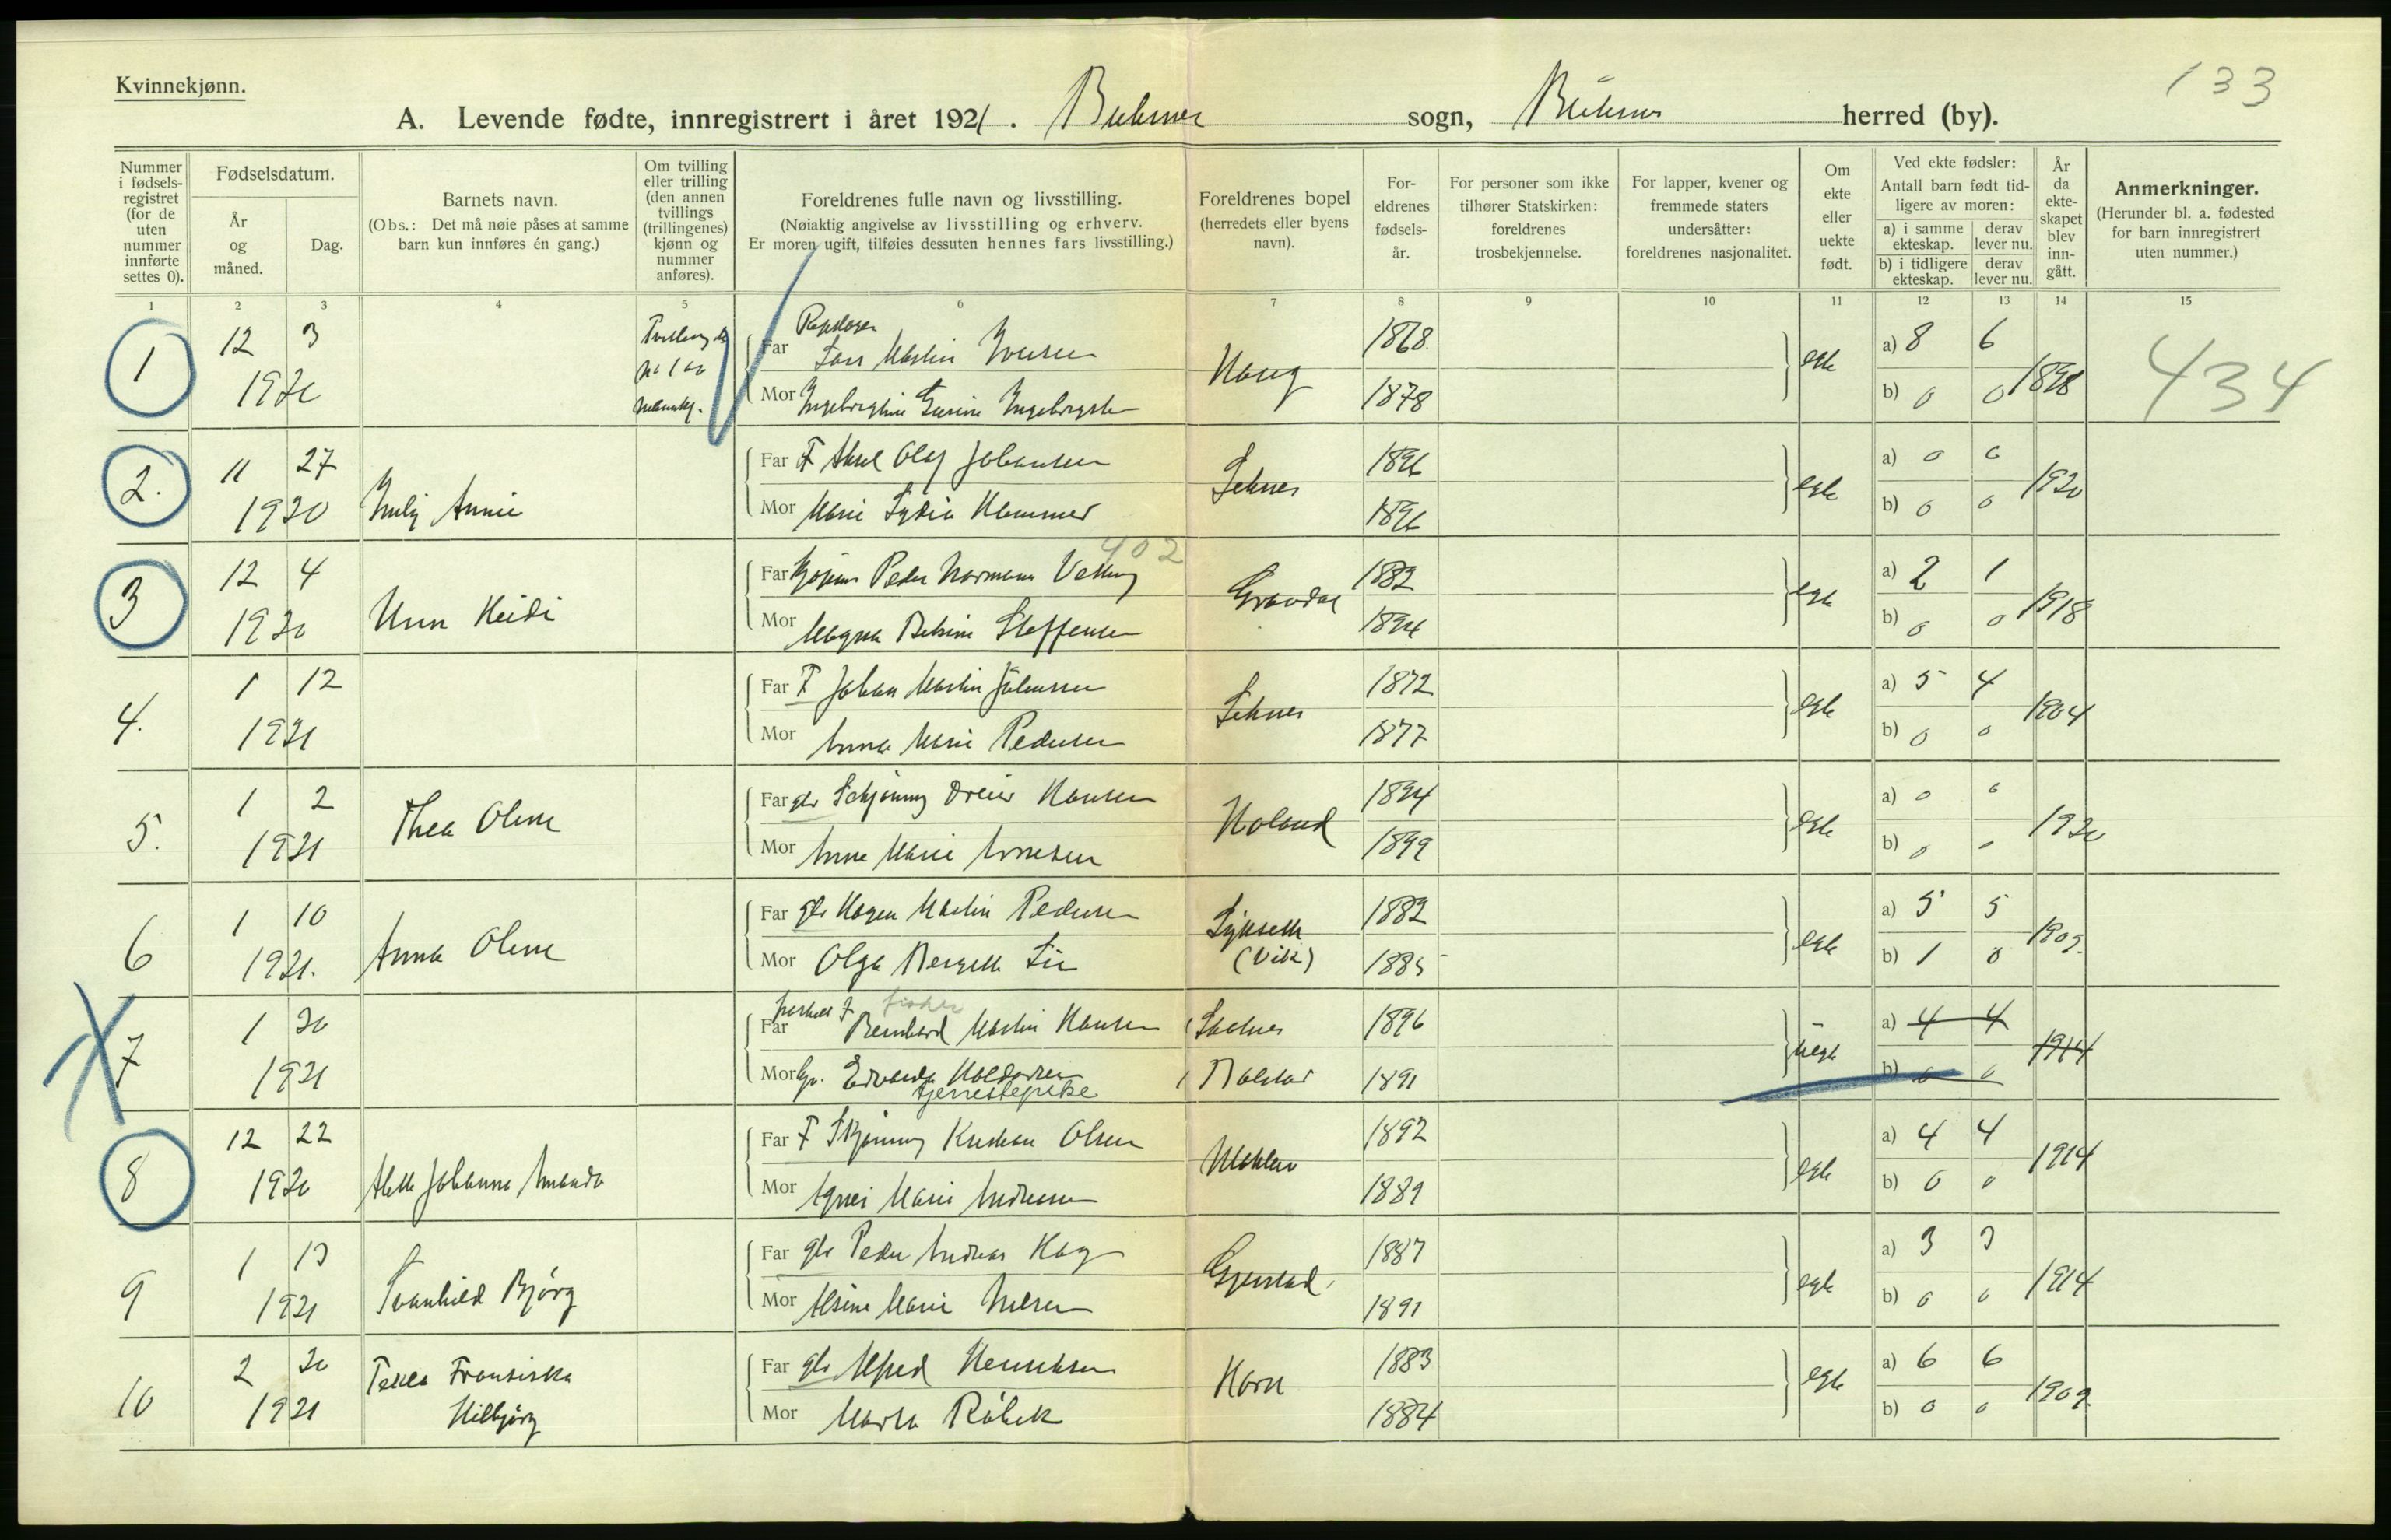 133
Kvinnekjønn.
A. Levende fødte, innregistrert i året 1921. Buksnes sogn, Buksnes herred (by).
Nummer i fødsels-registret (for de uten nummer innførte settes 0).
Fødselsdatum.
År og måned.
Dag.
Barnets navn.
(Obs.: Det må nøie påses at samme barn kun innføres én gang.)
Om tvilling eller trilling (den annen tvillings (trillingenes) kjønn og nummer anføres).
Foreldrenes fulle navn og livsstilling.
(Nøiaktig angivelse av livsstilling og erhverv.
Er moren ugift, tilføies dessuten hennes fars livsstilling.)
Foreldrenes bopel (herredets eller byens navn).
For-eldrenes fødsels-år.
For personer som ikke tilhører Statskirken: foreldrenes trosbekjennelse.
For lapper, kvener og fremmede staters undersåtter: foreldrenes nasjonalitet.
Om ekte eller uekte født.
Ved ekte fødsler:
Antall barn født tid-ligere av moren:
a) i samme ekteskap. derav lever nu.
b) i tidligere ekteskap. derav lever nu.
År da ekte-skapet blev inn-gått.
Anmerkninger.
(Herunder bl. a. fødested for barn innregistrert uten nummer.)
1 2 3 4 5 6 7 8 9 10 11 12 13 14 15
1 12 3 Far Lars Martin Iversen 1868 a) 8 6
1920 Haug egte 1898 434
Mor 1878 b) 0 0
2. 11 27 Far F Aksel Olaf Johansen 1896 a) 0 0
1920 Annie egte 1920
Mor Marie Lydia Hammer 1896 b) 0 0
402
3 12 4 Far Peder Normann 1882 a) 2 1
1920 Unn Heidi egte 1918
Mor Magna Steffensen 1894 b) 0 0
4. 1 12 Far F Johan Martin 1872 a) 5 4
1921 egte 1904
Mor Anna Marie Pedersen 1877 b) 0 0
5. 1 2 Far Hansen 1894 a) 0 0
1921 Thea Oline Holand egte 1920
Mor Anne Marie 1899 b) 0 0
6 1 10 Far Hagen Martin Pedersen 1882 a) 5 5
1921. Anna Oline (Vik) egte 1909.
Mor Olga Lie 1885 b) 1 0
7 1 20 Far fisker Bernhard Martin Hansen 1896 a) 4 4
1921 uegte 1914
Mor tjenestepike 1891 b) 0 0
8 12 22 Far F Olsen 1892 a) 4 4
1920 Johanna Amanda egte 1914
Mor Agnes Marie Andreassen 1889 b) 0 0
9 1 13 Far Peder Andreas Hag 1887 a) 3 3
1921 Svanhild Bjørg egte 1914
Mor Alsine Marie Nilsen 1891 b) 0 0
10 2 20 Far Alfred Henriksen 1883 a) 6 6
1921 Fransiska Horn egte 1909.
Hilbjørg Mor Marta Råbek 1884 b) 0 0